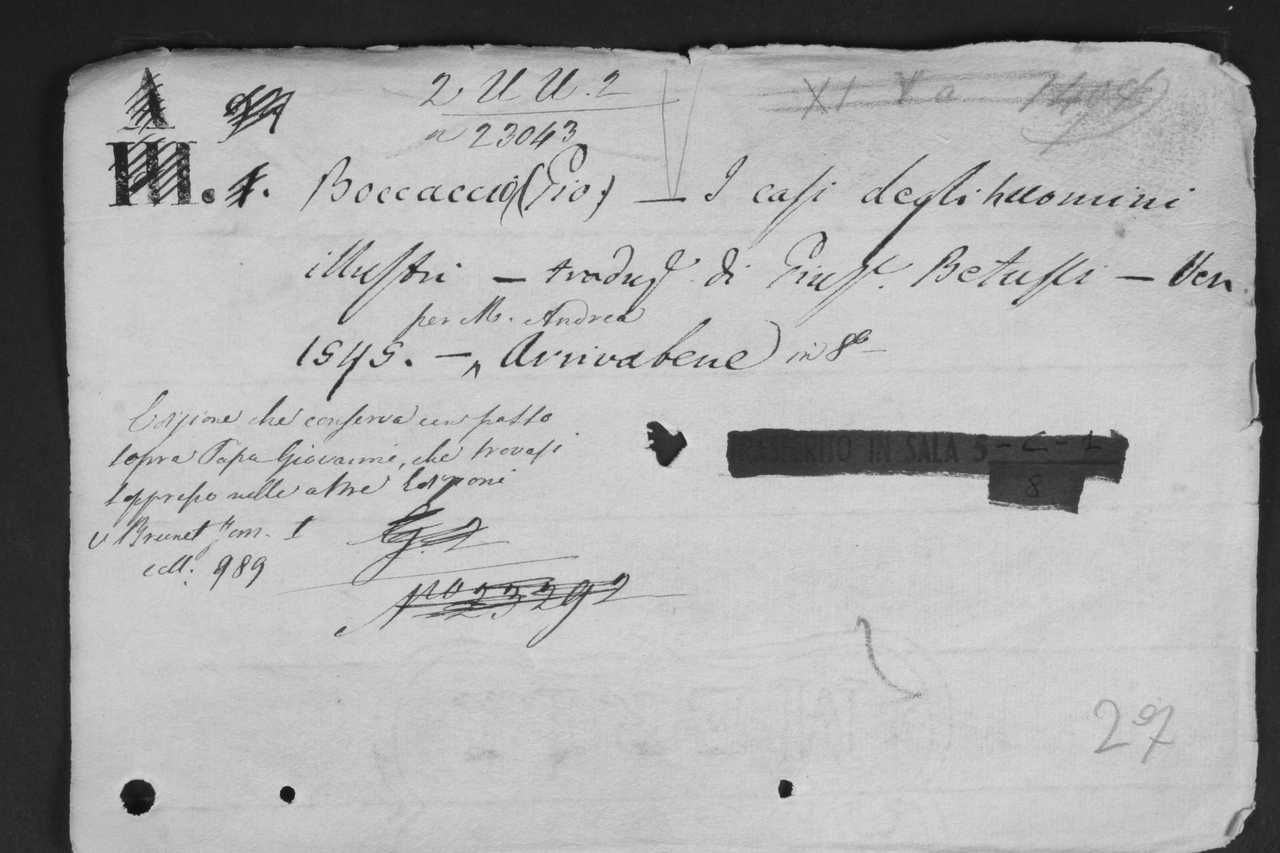 2 U U. 2
n 23043
XI V a
III. 1. Boccaccio (Gio) — I casi degli huomini
illustri — traduz. di Gius. Betussi — Ven.
per M. Andrea
1545. — ‸ Arrivabene in 8°
Edizione che conserva un passo
sopra Papa Giovanni, che trovasi
soppresso nelle altre Edizioni
V Brunet Tom. 1
coll. 989
TRASFERITO IN SALA 5 - C - 1
8
G. 2
N.ro 23292
297